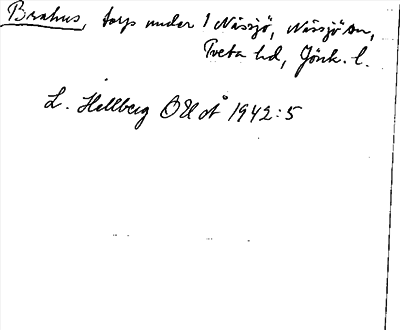 Brahus, torp under 1 Nässjö, Nässjö sn,
Tveta hd, Jönk. l.
L. Hellberg OUÅ 1942:5